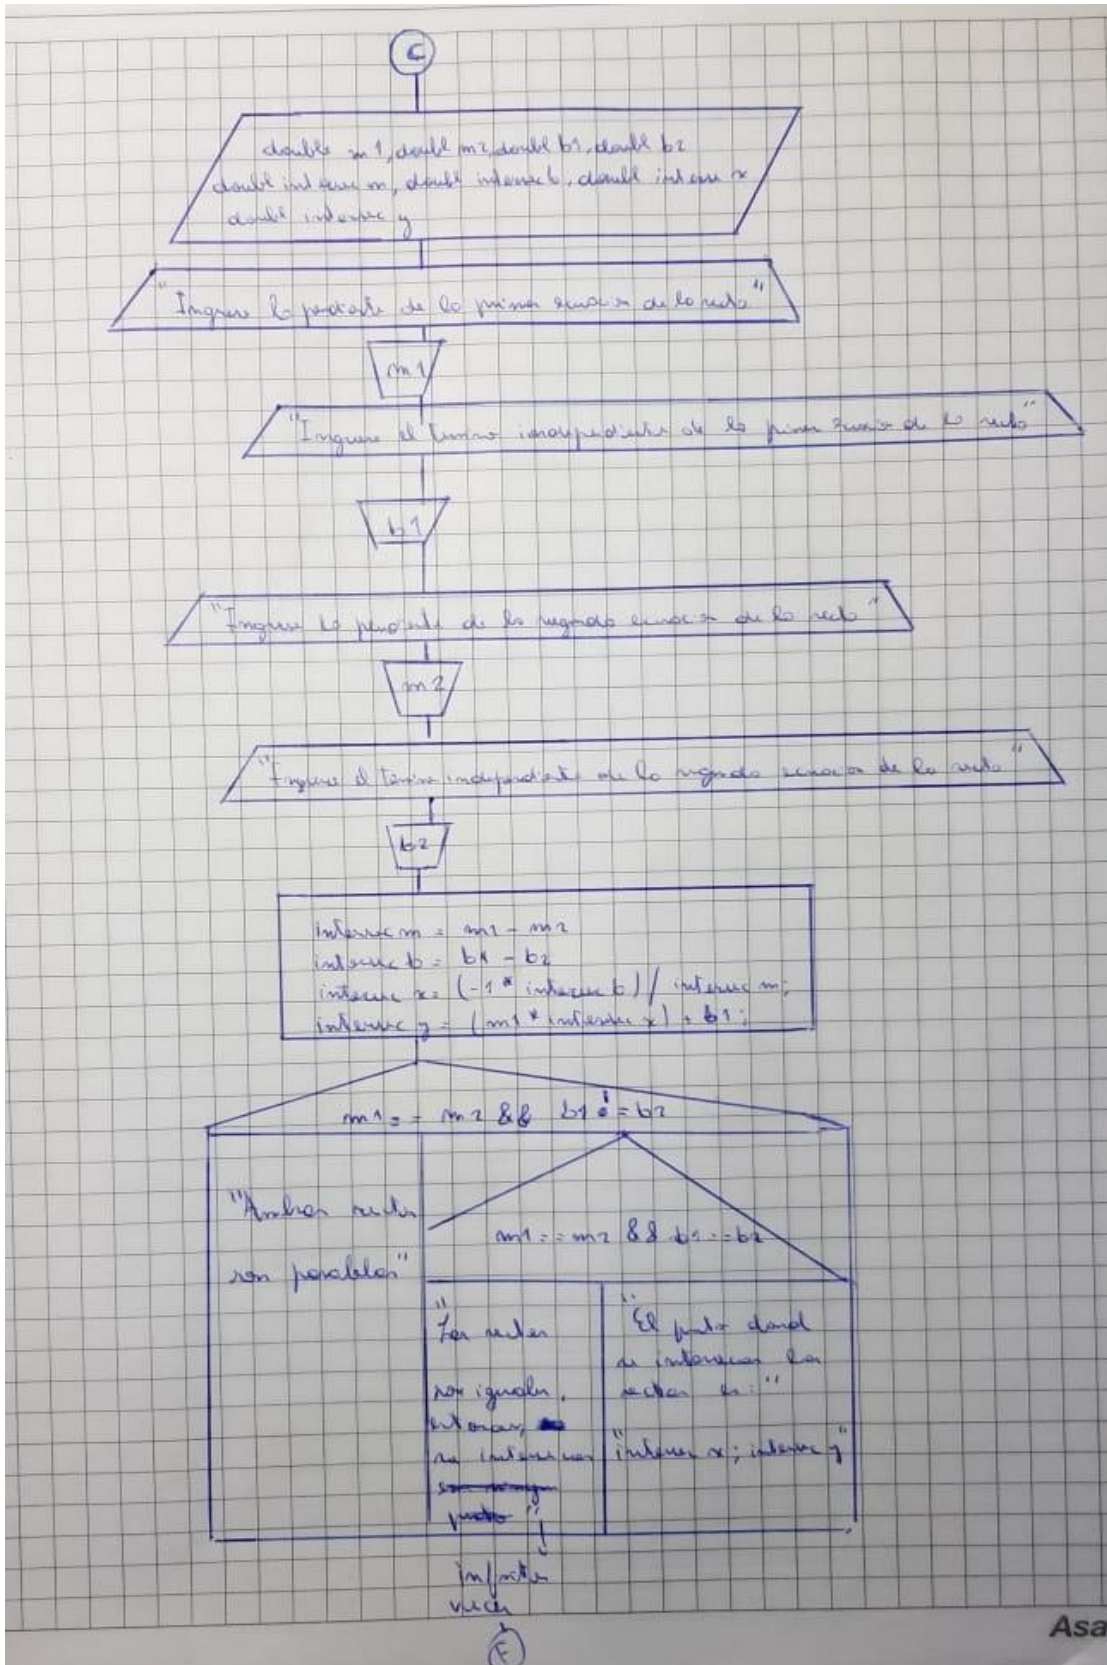 C
double m1, doubl m2, doubl b1, doubl b2
doubl intersec m, doubl intersec b, doubl intersec x
doubl intersec y
"Ingrese la pendiente de la primer ecuacion de la recta"
m1
"Ingrese el termino independiente de la primer ecuacion de la recta"
b1
"Ingrese la pendiente de la segunda ecuacion de la recta"
m2
"Ingrese el termino independiente de la segunda ecuacion de la recta"
b2
intersec m = m1 - m2
intersec b = b1 - b2
intersec x = (-1 * intersec b) / intersec m;
intersec y = (m1 * intersec x) + b1;
m1 == m2 && b1 != b2
"Ambas rectas
son paralelas"
m1 == m2 && b1 == b2
"Las rectas
son iguales,
entonces,
se intersecan
infinitas
veces
"El punto dond
se intersecan las
rectas es:"
"intersec x; intersec y"
F
Asa